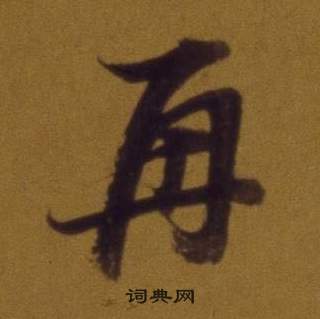 再
词典网